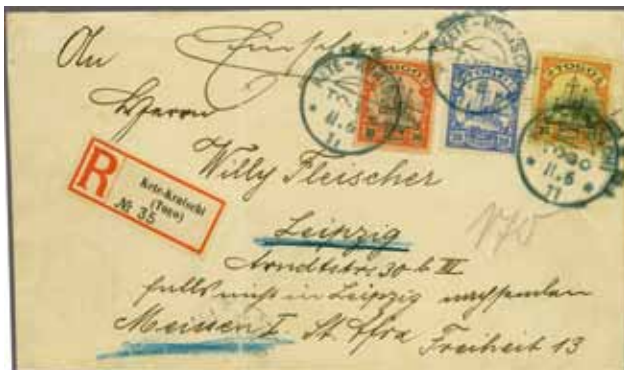 An Einschreiben
Herrn
Willy Fleischer
Leipzig
Arndtstr. 30 b III
falls nicht in Leipzig nachsenden
Meissen I St. Afra Freiheit 13
R
Kete-Kratschi
(Togo)
№ 35
TOGO
TOGO
KETE-KRATSCHI
TOGO
11.6
11
TOGO
11.6
11